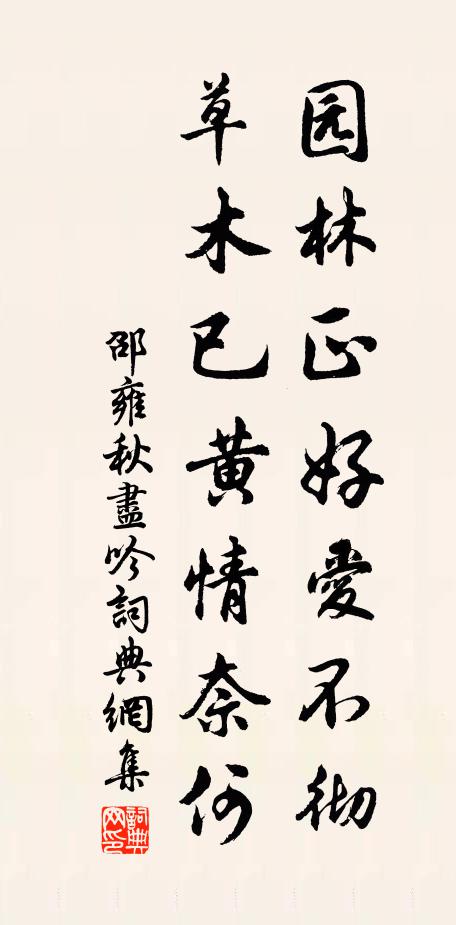 园林正好爱不彻
草木已黄情奈何
邵雍秋盡吟詞典網集
詞典网印